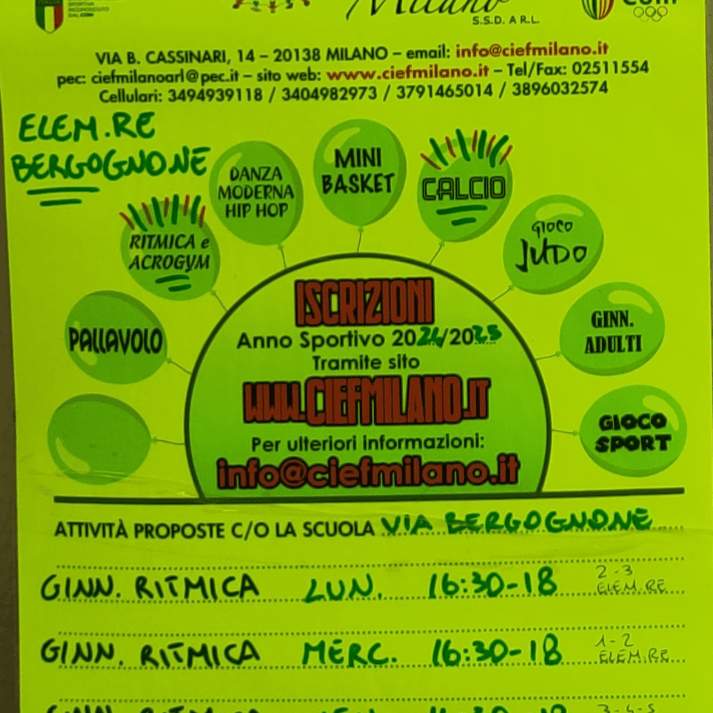 SPORTIVA
RICONOSCIUTO
DAL CONI
Milano
S.S.D. A R.L.
VIA B. CASSINARI, 14 – 20138 MILANO – email: info@ciefmilano.it
pec: ciefmilanoarl@pec.it – sito web: www.ciefmilano.it – Tel/Fax: 02511554
Cellulari: 3494939118 / 3404982973 / 3791465014 / 3896032574
ELEM.RE
BERGOGNONE
DANZA
MODERNA
HIP HOP
MINI
BASKET
CALCIO
RITMICA e
ACROGYM
GIOCO
JUDO
PALLAVOLO
GINN.
ADULTI
GIOCO
SPORT
ISCRIZIONI
Anno Sportivo 2024/2025
Tramite sito
WWW.CIEFMILANO.IT
Per ulteriori informazioni:
info@ciefmilano.it
ATTIVITÀ PROPOSTE C/O LA SCUOLA VIA BERGOGNONE
GINN. RITMICA LUN. 16:30-18 2-3 ELEM.RE
GINN. RITMICA MERC. 16:30-18 1-2 ELEM.RE